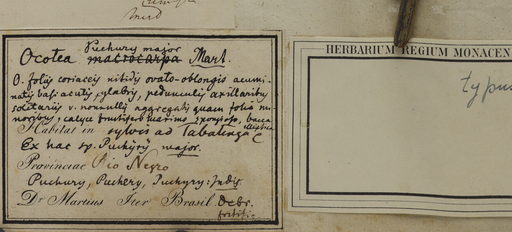 Puchury major
Ocotea macrocarpa Mart.
O. foliis coriaceis nitidis ovato-oblongis acumi-
natis basi acutis, glabris, pedunculis axillaribus
solitariis v. nonnullis aggregatis quam folia mi-
noribus, calyce fructifero maximo, bacca
elliptica
Habitat in sylvis ad Tabatinga
Ex hac sp. Puchyry major.
Provinciae Rio Negro
Puchury, Puchery, Puchyry: Indis
Dr Martius Iter Brasil. Decbr.
HERBARIUM REGIUM MONACEN
typus